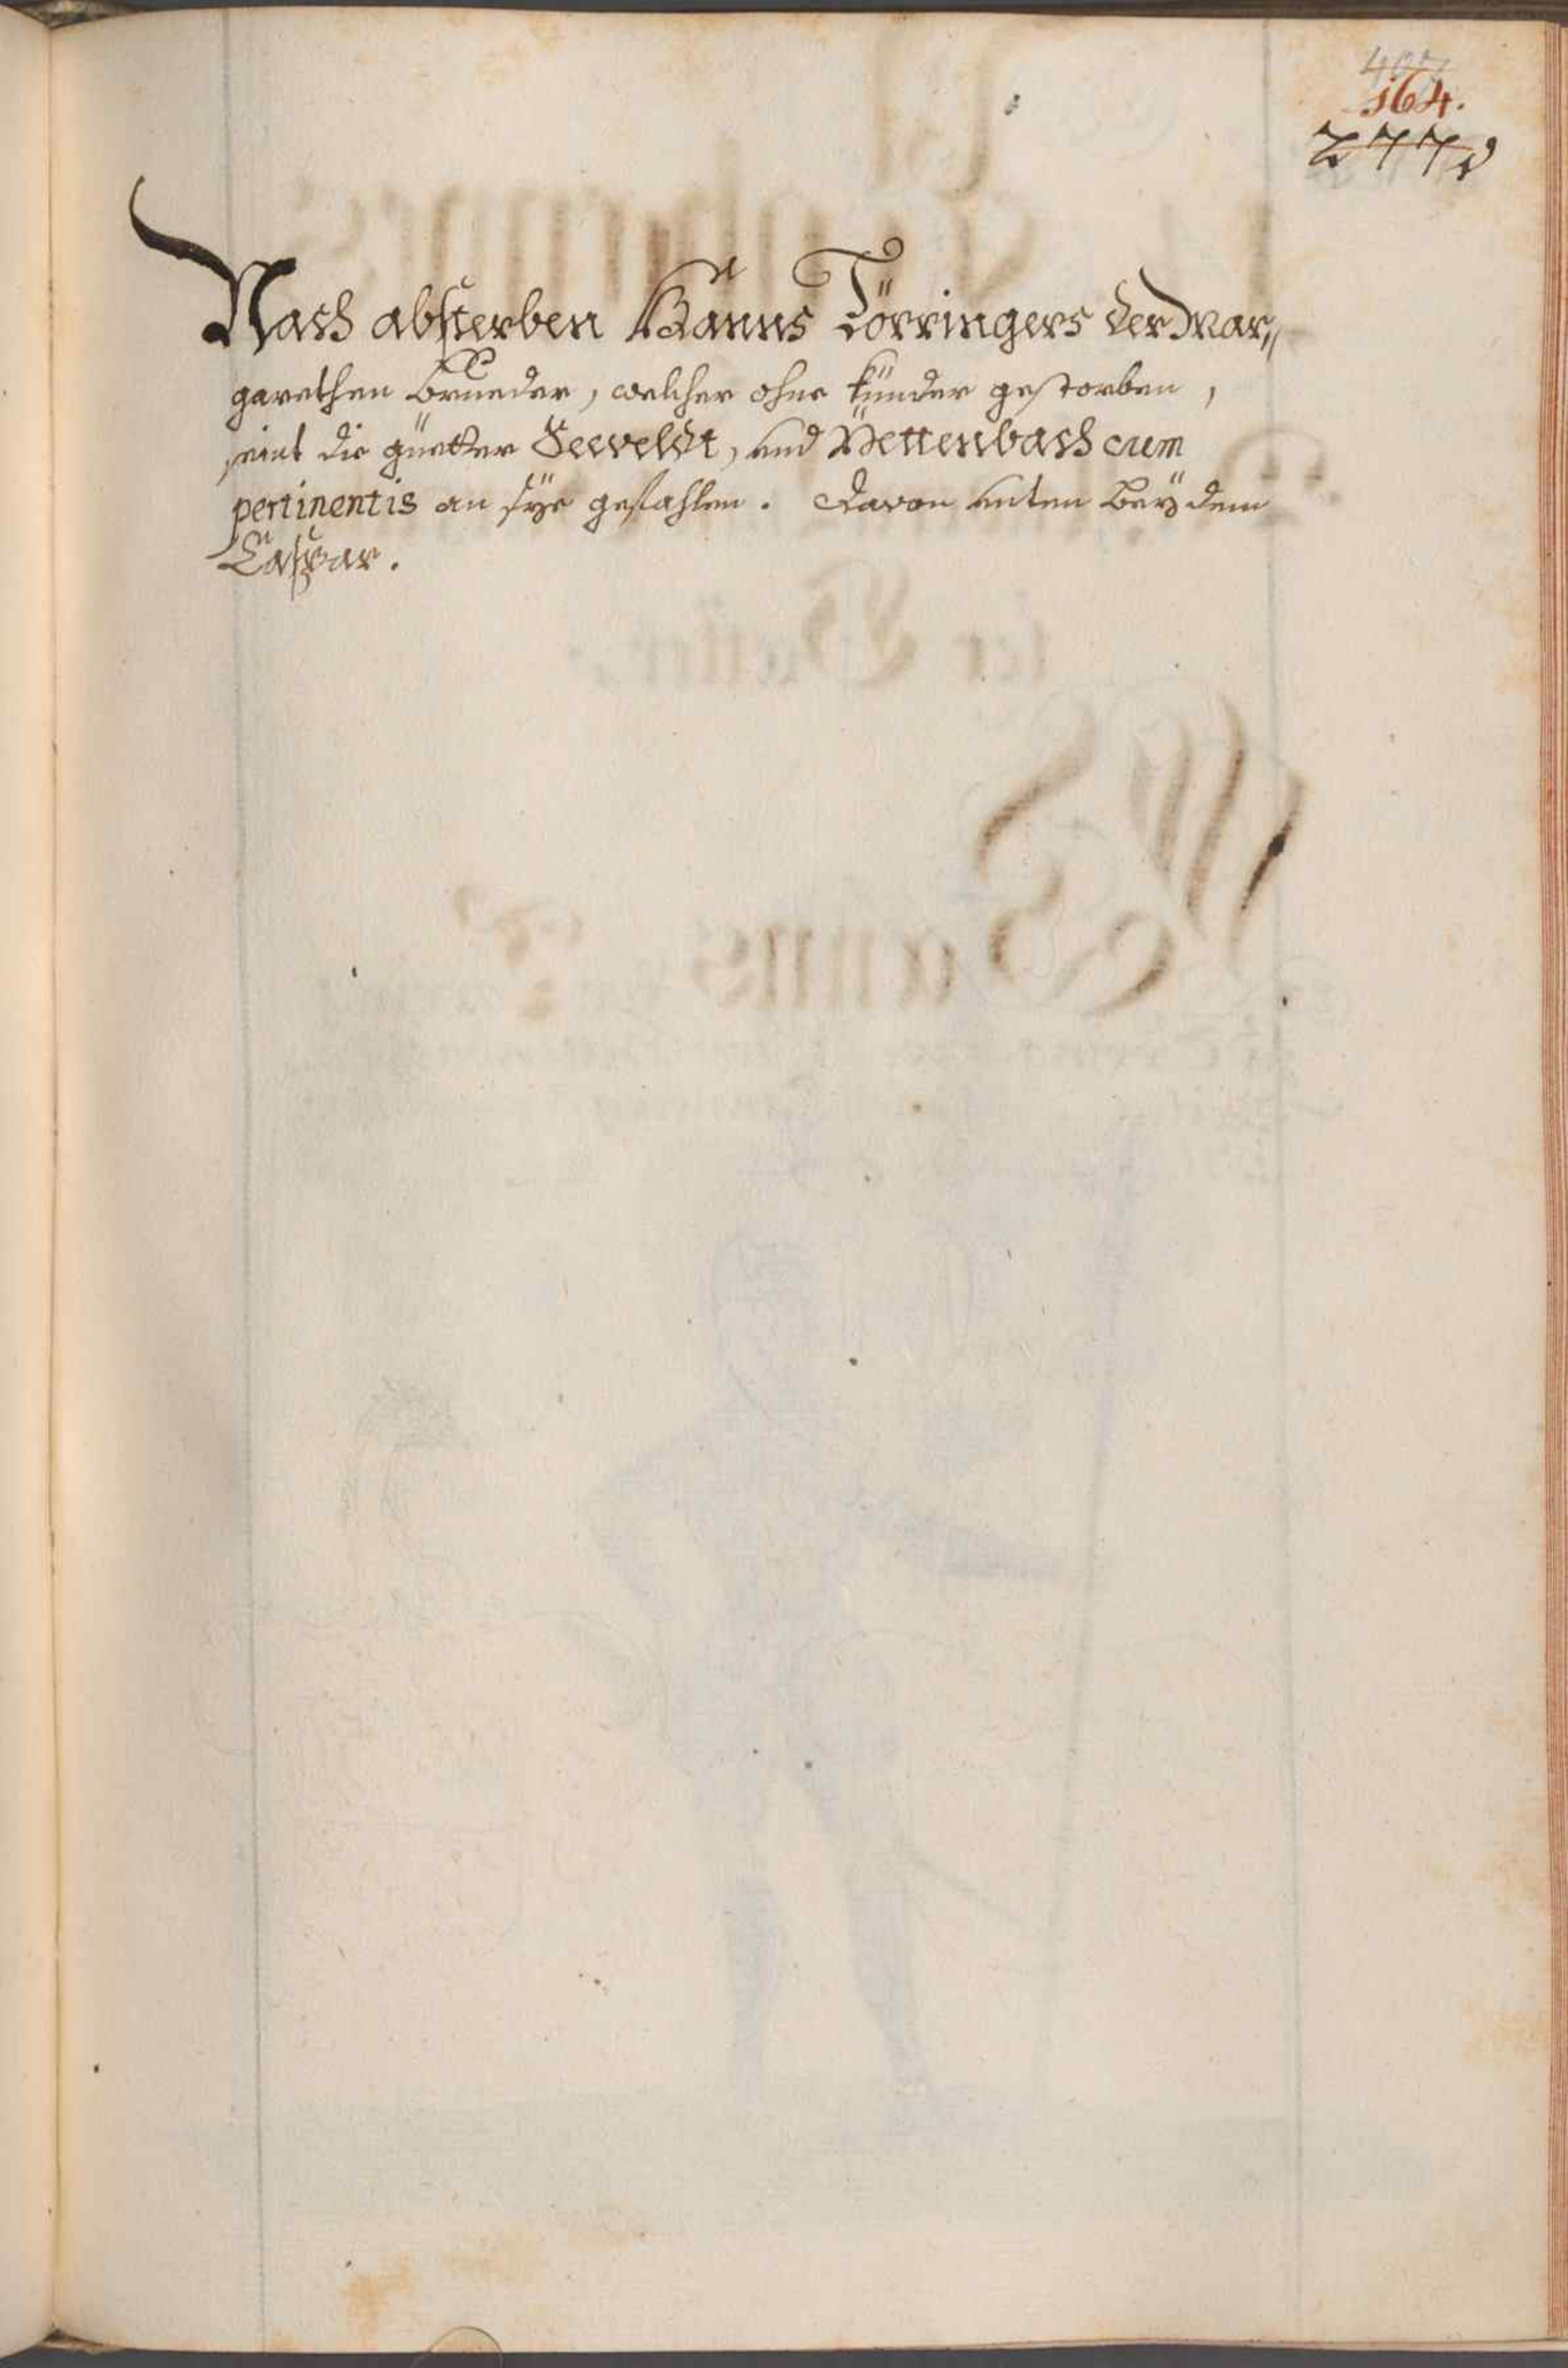 164.
277
Nach absterben Hanns Törringers der Mar,,
garethen Brueder, welcher ohne künder gestorben,
seint die güetter Seeveldt, und Mettenbach cum
pertinentis an sÿe gefahlen. Davon unten beÿ dem
Caspar.